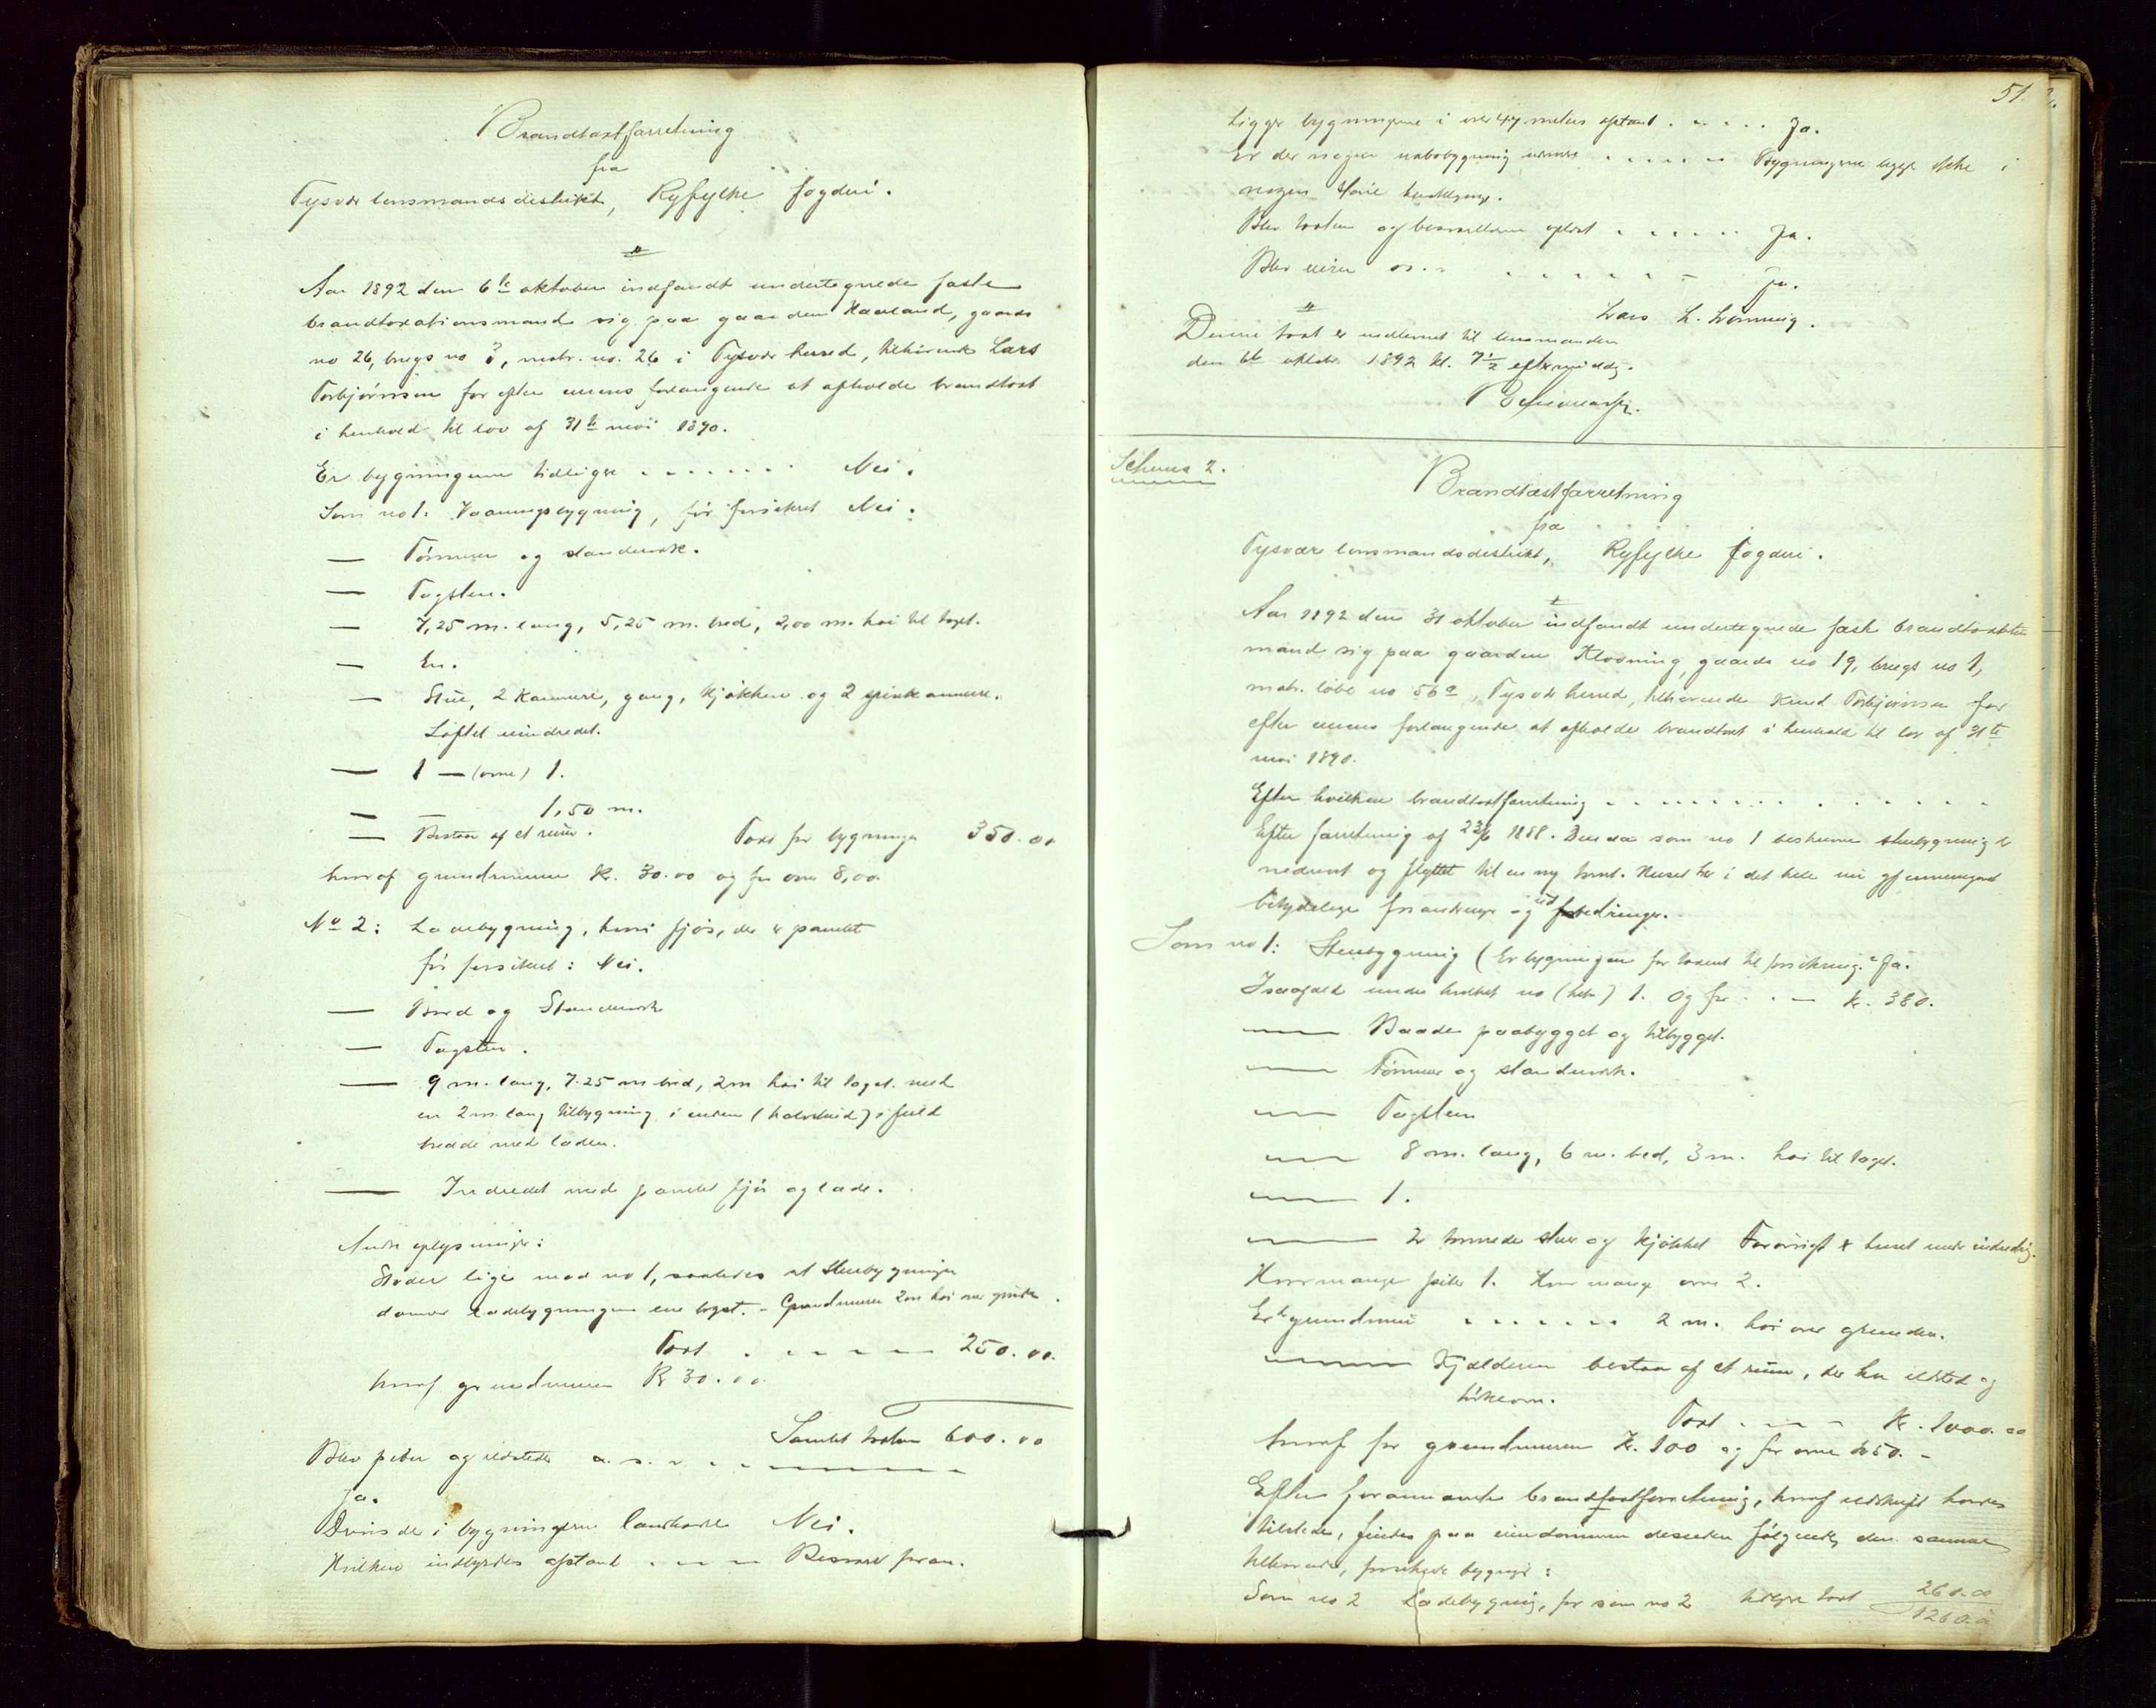 Brandtaxtforretning
fra
Tysvær lensmandsdistrikt, Ryfylke fogderi.
Aar 1892 den 6te oktober indfandt undertegnede faste
brandtaxationsmand sig paa gaarden Haaland, gaards
no 26, brugs no 3, matr. no. 26 i Tysvær herred, tilhörende Lars
Torbjörnsen for efter eierens forlangende at afholde brandtaxt
i henhold til lov af 31te mai 1890.
Er bygningerne tidligere . . . . . . . Nei.
Som no 1. Vaaningsbygning, før forsikret Nei.
— Tömmer og standerverk.
— Tagsten.
— 7,25 m. lang, 5,25 m. bred, 2,00 m. høi til taget.
— En.
— Stue, 2 Kammere, gang, kjøkken og 2
Loftet uindredet.
— 1 — (ovne) 1.
— — 1,50 m.
— Bestaar af et rum. Taxt for bygningen 350.00
hvoraf grundmuren Kr. 30.00 og for ovne 8,00.
No 2: Ladebygning, hvori fjøs, der er panelet
før forsikret: Nei.
— Bord og Standerverk
— Tagsten.
— 9 m. lang, 7.25 m bred, 2 m høi til taget. med
en 2 m. lang tilbygning i enden (halvskud) i fuld
bredde med laden.
— Indredet med panelet fjös og lade.
Andre oplysninger:
Støder lige mod no 1, saaledes at Stuebygningen
danner ladebygningens ene væg. - Grundmuren 2 m høi over grunden.
Taxt . . . . . 250.00.
hvoraf grundmuren Kr 30.00
Samlet taxten 600.00
Blev piber og ildsteder o. s. v. . .
Ja.
Drives der i bygningerne Nei.
Hvilken indbyrdes afstand . . . . Besvaret foran.
51.
Ligger bygningerne i over 47 meters afstand . . . . . Ja.
Er der nogen nabobygning . . . . . Bygningerne ligge ikke i
nogen större
Blev taxten og oplæst . . . . . . Ja.
Blev eieren os. v. . . . . . . Ja.
Lars L. Lönning.
Denne taxt er indleveret til lensmanden
den 6te oktober 1892 kl. 7½ eftermiddag.
Schema 2.
Brandtaxtforretning
fra
Tysvær lensmandsdistrikt, Ryfylke fogderi.
Aar 1892 den 31 oktober indfandt undertegnede faste brandtaxations
mand sig paa gaarden Klooning, gaards no 19, brugs no 1,
matr. løbe no 56a, Tysvær herred, tilhørende Knud Torbjörnsen for
efter eierens forlangende at afholde brandtaxt i henhold til lov af 31te
mai 1890.
Efter hvilken brandtaxtforretning . . . . . . . . . . . . .
Efter forretning af 22/6 1858. Den da som no 1 beskrevne stuebygning er
nedrevet og flyttet til en ny tomt. Huset har i det hele nu gjennemgaaet
betydelige forandringer og udbedringer.
Som no 1: Stuebygning (Er bygningen før taxeret til forsikring." Ja.
Isaafald under hvilket no (litr.) 1. Og for . . — kr. 380.
— Baade paabygget og tilbygget.
— Tömmer og standerverk.
— Tagsten
— 8 m. lang, 6 m. bred, 3 m. høi til taget.
— 1.
— Er indrede stuer og kjøkken Forøvrigt er huset under indredning.
Hvormange piber 1. Hvor mange ovne 2.
Er grundmur . . . . . . 2 m. høi over grunden.
— Kjælderen bestaar af et rum, der har ildsted og
tørkeovn.
Taxt . . . . Kr. 1000.00
hvoraf for grundmuren Kr. 100 og for ovne 50. -
Efter foranævnte brandtaxtforretning, hvoraf udskrift havdes
tilstede, findes paa eiendommen desuden følgende, den samme
tilhørende, forsikrede bygninger:
Som no 2 Ladebygning, før som no 2 tidligere taxt 260.00
1260.00